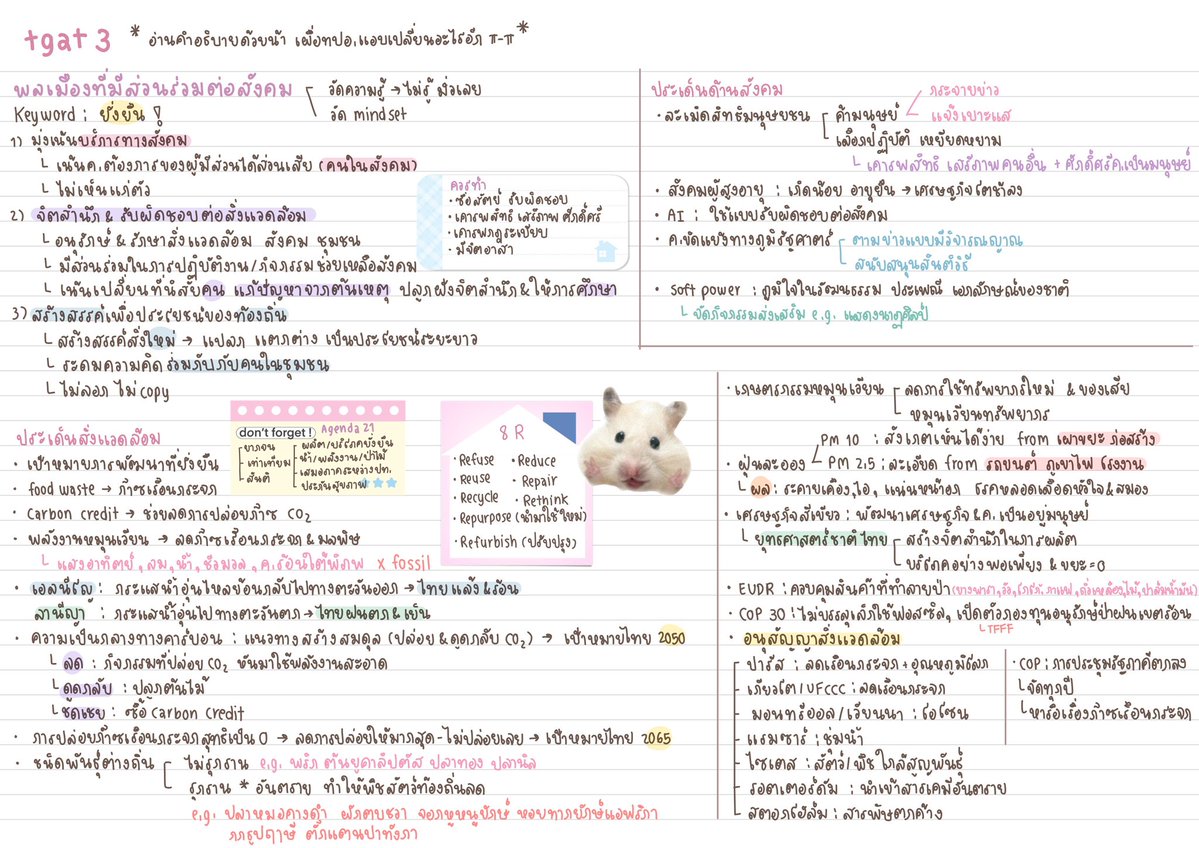 tgat 3 * อ่านคำอธิบายด้วยน้า เผื่อทปอ.แอบเปลี่ยนอะไรอีก π-π *
พลเมืองที่มีส่วนร่วมต่อสังคม
วัดความรู้ → ไม่รู้ มั่วเลย
วัด mindset
Keyword : ยั่งยืน !
1) มุ่งเน้นบริการทางสังคม
└ เน้นค.ต้องการของผู้มีส่วนได้ส่วนเสีย (คนในสังคม)
└ ไม่เห็นแก่ตัว
2) จิตสำนึก & รับผิดชอบต่อสิ่งแวดล้อม
└ อนุรักษ์ & รักษาสิ่งแวดล้อม สังคม ชุมชน
└ มีส่วนร่วมในการปฏิบัติงาน/กิจกรรมช่วยเหลือสังคม
└ เน้นเปลี่ยนที่นิสัยคน แก้ปัญหาจากต้นเหตุ ปลูกฝังจิตสำนึก & ให้การศึกษา
3) สร้างสรรค์เพื่อประโยชน์ของท้องถิ่น
└ สร้างสรรค์สิ่งใหม่ → แปลก แตกต่าง เป็นประโยชน์ระยะยาว
└ ระดมความคิด ร่วมกับกับคนในชุมชน
└ ไม่ลอก ไม่ copy
ควรทำ
• ซื่อสัตย์ รับผิดชอบ
• เคารพสิทธิ เสรีภาพ ศักดิ์ศรี
• เคารพกฎระเบียบ
• มีจิตอาสา
ประเด็นด้านสังคม
• ละเมิดสิทธิมนุษยชน
ค้ามนุษย์
กระจายข่าว
แจ้งเบาะแส
เลือกปฏิบัติ เหยียดหยาม
└ เคารพสิทธิ เสรีภาพคนอื่น + ศักดิ์ศรีค.เป็นมนุษย์
• สังคมผู้สูงอายุ : เกิดน้อย อายุยืน → เศรษฐกิจโตช้าลง
• AI : ใช้แบบรับผิดชอบต่อสังคม
• ค.ขัดแย้งทางภูมิรัฐศาสตร์
ตามข่าวแบบมีวิจารณญาณ
สนับสนุนสันติวิธี
• soft power : ภูมิใจในวัฒนธรรม ประเพณี เอกลักษณ์ของชาติ
└ จัดกิจกรรมส่งเสริม e.g. แสดงนาฏศิลป์
ประเด็นสิ่งแวดล้อม
• เป้าหมายการพัฒนาที่ยั่งยืน
• food waste → ก๊าซเรือนกระจก
• Carbon credit → ช่วยลดการปล่อยก๊าซ CO₂
• พลังงานหมุนเวียน → ลดก๊าซเรือนกระจก & มลพิษ
└ แสงอาทิตย์, ลม, น้ำ, ชีวมวล, ค.ร้อนใต้พิภพ x fossil
don't forget ! Agenda 21
ยากจน
เท่าเทียม
สันติ
ผลิต/บริโภคยั่งยืน
น้ำ/พลังงาน/ป่าไม้
เสมอภาคระหว่างปท.
ประกันสุขภาพ
8 R
• Refuse • Reduce
• Reuse • Repair
• Recycle • Rethink
• Repurpose (นำมาใช้ใหม่)
• Refurbish (ปรับปรุง)
• เอลนีโญ : กระแสน้ำอุ่นไหลย้อนกลับไปทางตะวันออก → ไทยแล้ง & ร้อน
ลานีญา : กระแสน้ำอุ่นไปทางตะวันตก → ไทยฝนตก & เย็น
• ความเป็นกลางทางคาร์บอน : แนวทางสร้างสมดุล (ปล่อย & ดูดกลับ CO₂) → เป้าหมายไทย 2050
└ ลด : กิจกรรมที่ปล่อย CO₂ หันมาใช้พลังงานสะอาด
└ ดูดกลับ : ปลูกต้นไม้
└ ชดเชย : ซื้อ Carbon Credit
• การปล่อยก๊าซเรือนกระจกสุทธิเป็น 0 → ลดการปล่อยให้มากสุด-ไม่ปล่อยเลย → เป้าหมายไทย 2065
• ชนิดพันธุ์ต่างถิ่น
ไม่รุกราน e.g. พริก ต้นยูคาลิปตัส ปลาทอง ปลานิล
รุกราน * อันตราย ทำให้พืชสัตว์ท้องถิ่นลด
e.g. ปลาหมอคางดำ ผักตบชวา จอกหูหนูยักษ์ หอยทากยักษ์แอฟริกา
กกธูปฤาษี ตั๊กแตนปาทังกา
• เกษตรกรรมหมุนเวียน
ลดการใช้ทรัพยากรใหม่ & ของเสีย
หมุนเวียนทรัพยากร
• ฝุ่นละออง
PM 10 : สังเกตเห็นได้ง่าย from เผาขยะ ก่อสร้าง
PM 2.5 : ละเอียด from รถยนต์ ภูเขาไฟ โรงงาน
└ ผล : ระคายเคือง, ไอ, แน่นหน้าอก โรคหลอดเลือดหัวใจ & สมอง
• เศรษฐกิจสีเขียว : พัฒนาเศรษฐกิจ & ค.เป็นอยู่มนุษย์
└ ยุทธศาสตร์ชาติไทย
สร้างจิตสำนึกในการผลิต
บริโภคอย่างพอเพียง & ขยะ=0
• EUDR : ควบคุมสินค้าที่ทำลายป่า (ยางพารา, วัว, โกโก้, กาแฟ, ถั่วเหลือง, ไม้, ปาล์มน้ำมัน)
• COP 30 : ไม่บรรลุเลิกใช้ฟอสซิล, เปิดตัวกองทุนอนุรักษ์ป่าฝนเขตร้อน
└ TFFF
• อนุสัญญาสิ่งแวดล้อม
ปารีส : ลดเรือนกระจก + อุณหภูมิโลก
เกียวโต/UFCCC : ลดเรือนกระจก
มอนทรีออล/เวียนนา : โอโซน
แรมซาร์ : ชุ่มน้ำ
ไซเตส : สัตว์/พืชใกล้สูญพันธุ์
รอตเตอร์ดัม : นำเข้าสารเคมีอันตราย
สตอกโฮล์ม : สารพิษตกค้าง
• COP : การประชุมรัฐภาคีตกลง
└ จัดทุกปี
└ หารือเรื่องก๊าซเรือนกระจก